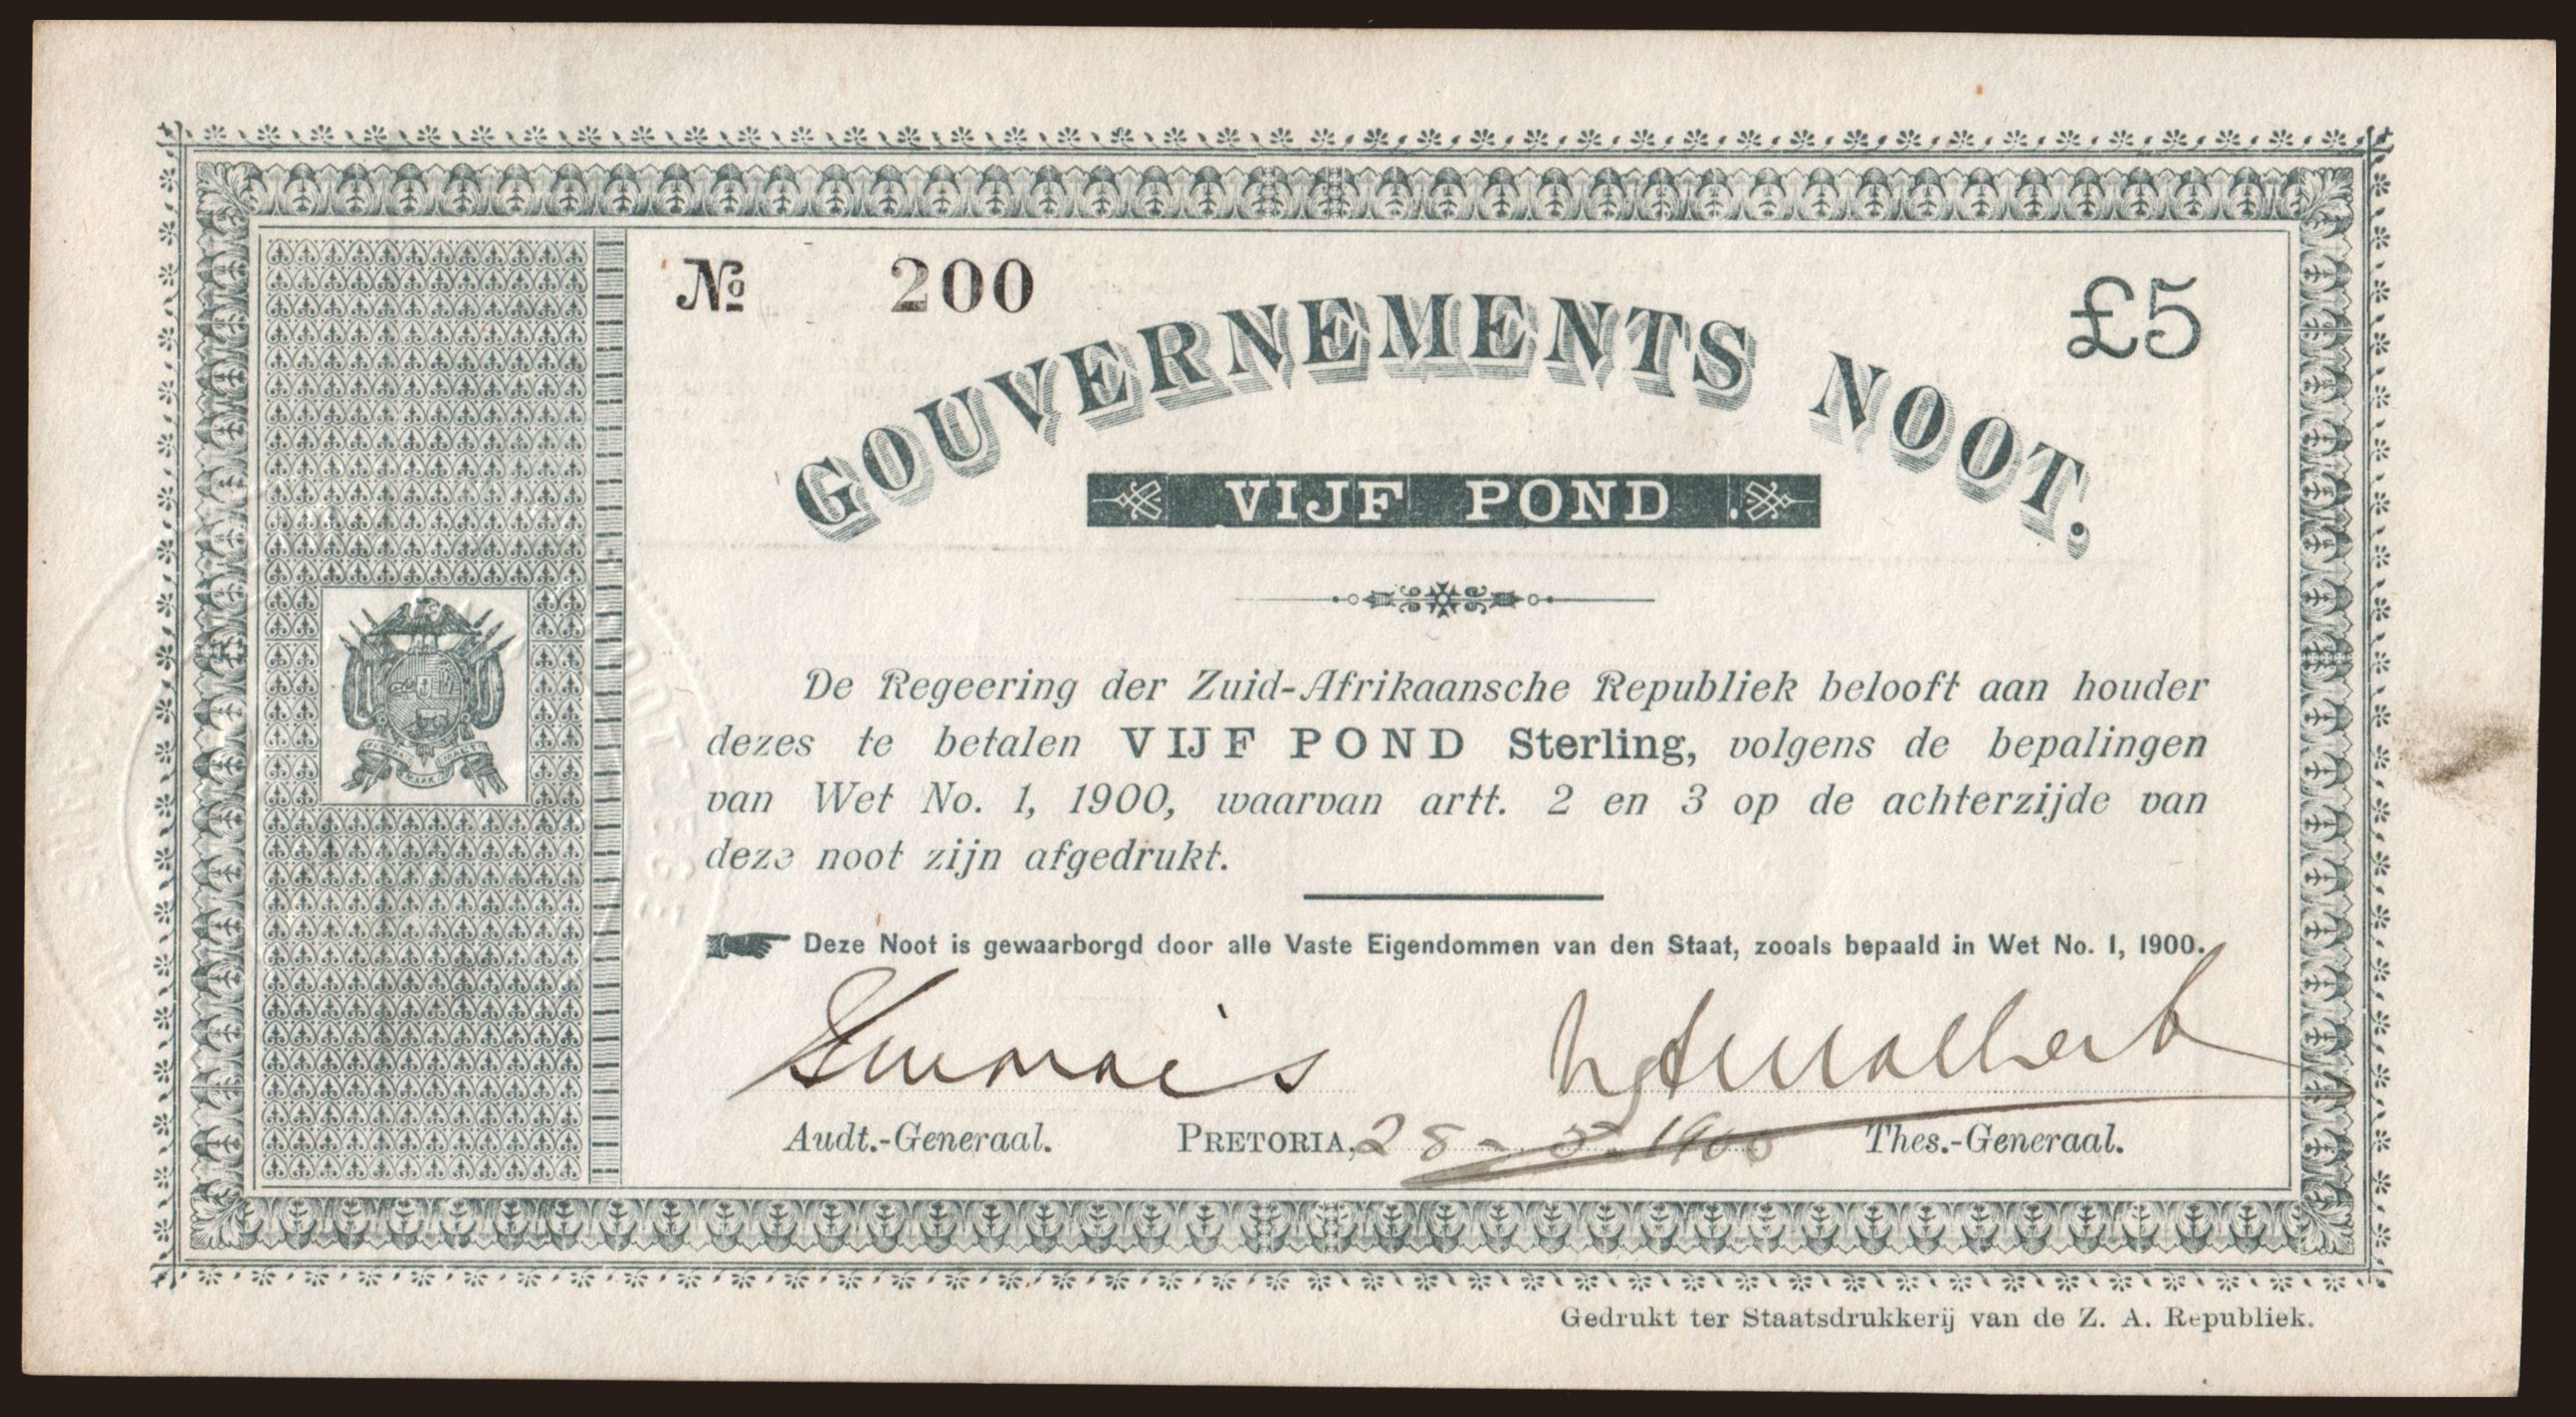 № 200
£5
GOUVERNEMENTS NOOT.
VIJF POND.
De Regeering der Zuid-Afrikaansche Republiek belooft aan houder
dezes te betalen VIJF POND Sterling, volgens de bepalingen
van Wet No. 1, 1900, waarvan artt. 2 en 3 op de achterzijde van
deze noot zijn afgedrukt.
Deze Noot is gewaarborgd door alle Vaste Eigendommen van den Staat, zooals bepaald in Wet No. 1, 1900.
Audt.-Generaal. PRETORIA, 28-5-1900 Thes.-Generaal.
Gedrukt ter Staatsdrukkerij van de Z. A. Republiek.